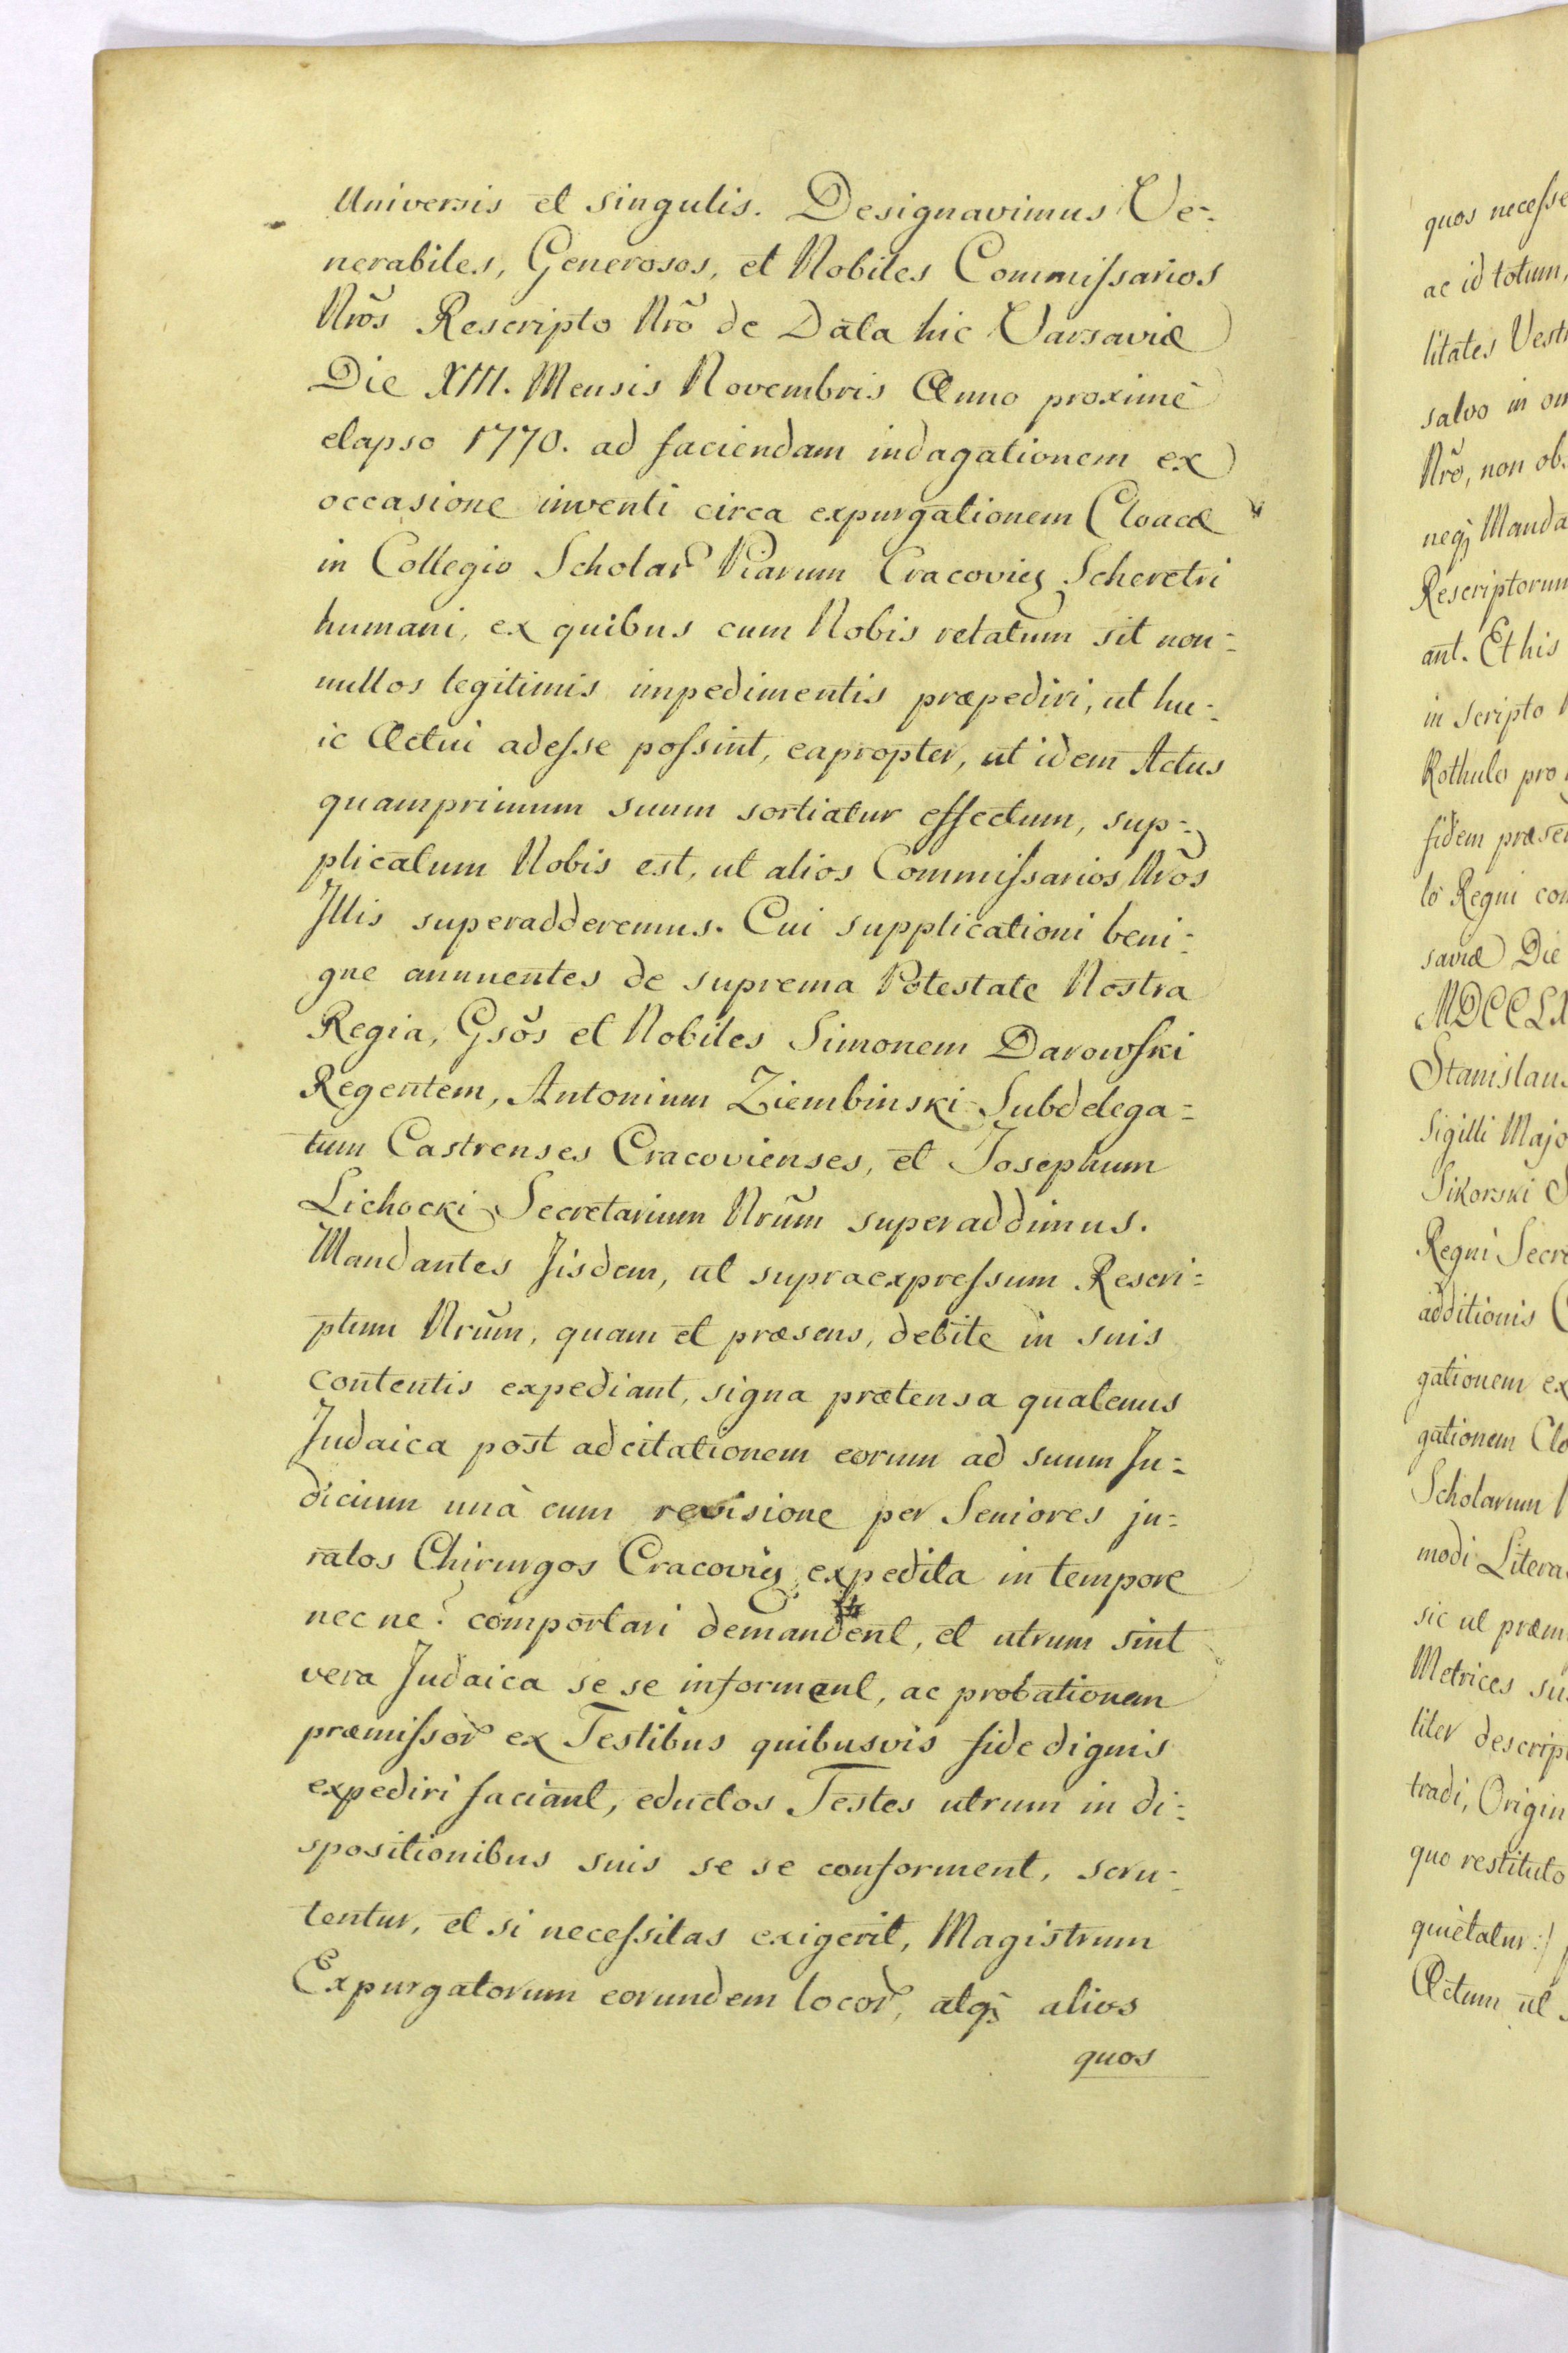 Universis et singulis. Designavimus Ve-
nerabiles, Generosos, et Nobiles Commissarios
Nrõs Rescripto Nrõ de Data hic Varsaviæ
Die XIII. Mensis Novembris Anno proximè
elapso 1770. ad faciendam indagationem ex
occasione inventi circa expurgationem Cloacæ
in Collegio Scholar Piarum Cracovię Scheretri
humani, ex quibus cum Nobis relatum sit non-
nullos legitimis impedimentis præpediri, ut hu-
ic Actui adesse possint, eapropter, ut idem Actus
quamprimum suum sortiatur effectum, sup-
plicatum Nobis est, ut alios Commissarios Nrõs
Illis superadderemus. Cui supplicationi beni-
gne annuentes de suprema Potestate Nostra
Regia, Gsõs et Nobiles Simonem Darowski
Regentem, Antonium Ziembinski Subdelega-
tum Castrenses Cracovienses, et Josephum
Lichocki Secretarium Nrũm superaddimus.
Mandantes Iisdem, ut supraexpressum Rescri-
ptum Nrũm, quam et præsens, debite in suis
contentis expediant, signa prætensa quatenus
Judaica post adcitationem eorum ad suum Ju-
dicium unà cum revisione per Seniores ju-
ratos Chirurgos Cracovię expedita in tempore
nec ne? comportari demandent, et utrum sint
vera Judaica se se informent, ac probationem
præmissor ex Testibus quibusvis fide dignis
expediri faciant, eductos Testes utrum in di-
spositionibus suis se se conforment, scru-
tentur, et si necessitas exigerit, Magistrum
Expurgatorum eorundem locor, atq; alios
quos
quos necesse
ac id totum,
litates Vest
salvo in
Nrõ, non ob
neq; Manda
Rescriptorum
ant. Et his
in scripto
Rothulo pro
fidem præsen
lò Regni con
saviæ Die
MDCCLX
Stanislaus
Sigilli Majo
Sikorski S
Regni Secre
additionis C
gationem ex
gationem Clo
Scholarum P
modi Litera
sic ut præm
Metrices su
liter descrip
tradi, Origin
quo restituto
quietatur:/
Actum ut